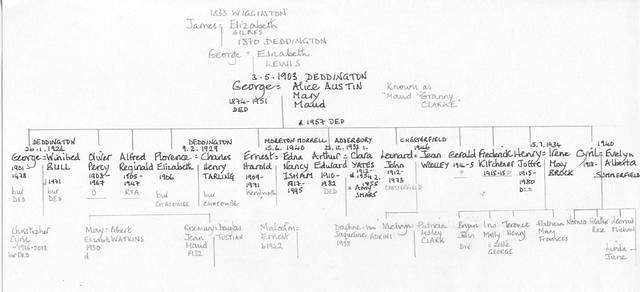 1833 WIGGINTON
James = Elizabeth
GILKES
1870 DEDDINGTON
George = Elizabeth
LEWIS
3.5.1903 DEDDINGTON
George = Alice AUSTIN
1874-1951 Mary
DED Maud
Known as
"Maud 'Granny'
CLARKE"
d 1957 DED
DEDDINGTON
26.1.1924
George = Winifred
1901 BULL
1978 d 1971
bur bur
DED DED
Oliver
Percy
1903-
1967
Alfred
Reginald
1905-
1947
RTA
DEDDINGTON
9.2.1929
Florence = Charles
Elizabeth Henry
1906 TARLING
bur bur
CHACOMBE CHACOMBE
MORETON MORRELL
15.6.1940
Ernest = Edna
Harold Nancy
1909- ISHAM
1991 1917-
1995
ADDERBURY
Arthur = Clara
Edward YATES
1910- 1912-
1982
DED = Amy
SHARY
CHESTERFIELD
1946
Leonard = Jean
John WOOLLEY
1912-
1973
CHESTERFIELD
Gerald
1914-5
Frederick
Kitchener
1915-15
15.7.1934
Henry = Irene
Joffre May
1915- BROCK
1980
DED
1940
Cyril = Evelyn
Alberta
SOMMERFIELD
Christopher
Cyril
1926-2013
bur DED
May = Albert
Elizabeth WATKINS
1930
d
Rosemary = Douglas
Jean TUSTIAN
Maud
1932
Malcolm =
Ernest
b 1942
Daphne = Ian
Jaqueline ADKINS
1938
Melvyn = Patricia
Lesley
CLARK
Bryan
John
DIV
Iris
Molly
= Leslie
GEORGE
Terence
Henry
Patricia
May
Frances
Norma
Heather
Rose
Leonard
Michael
Linda
June